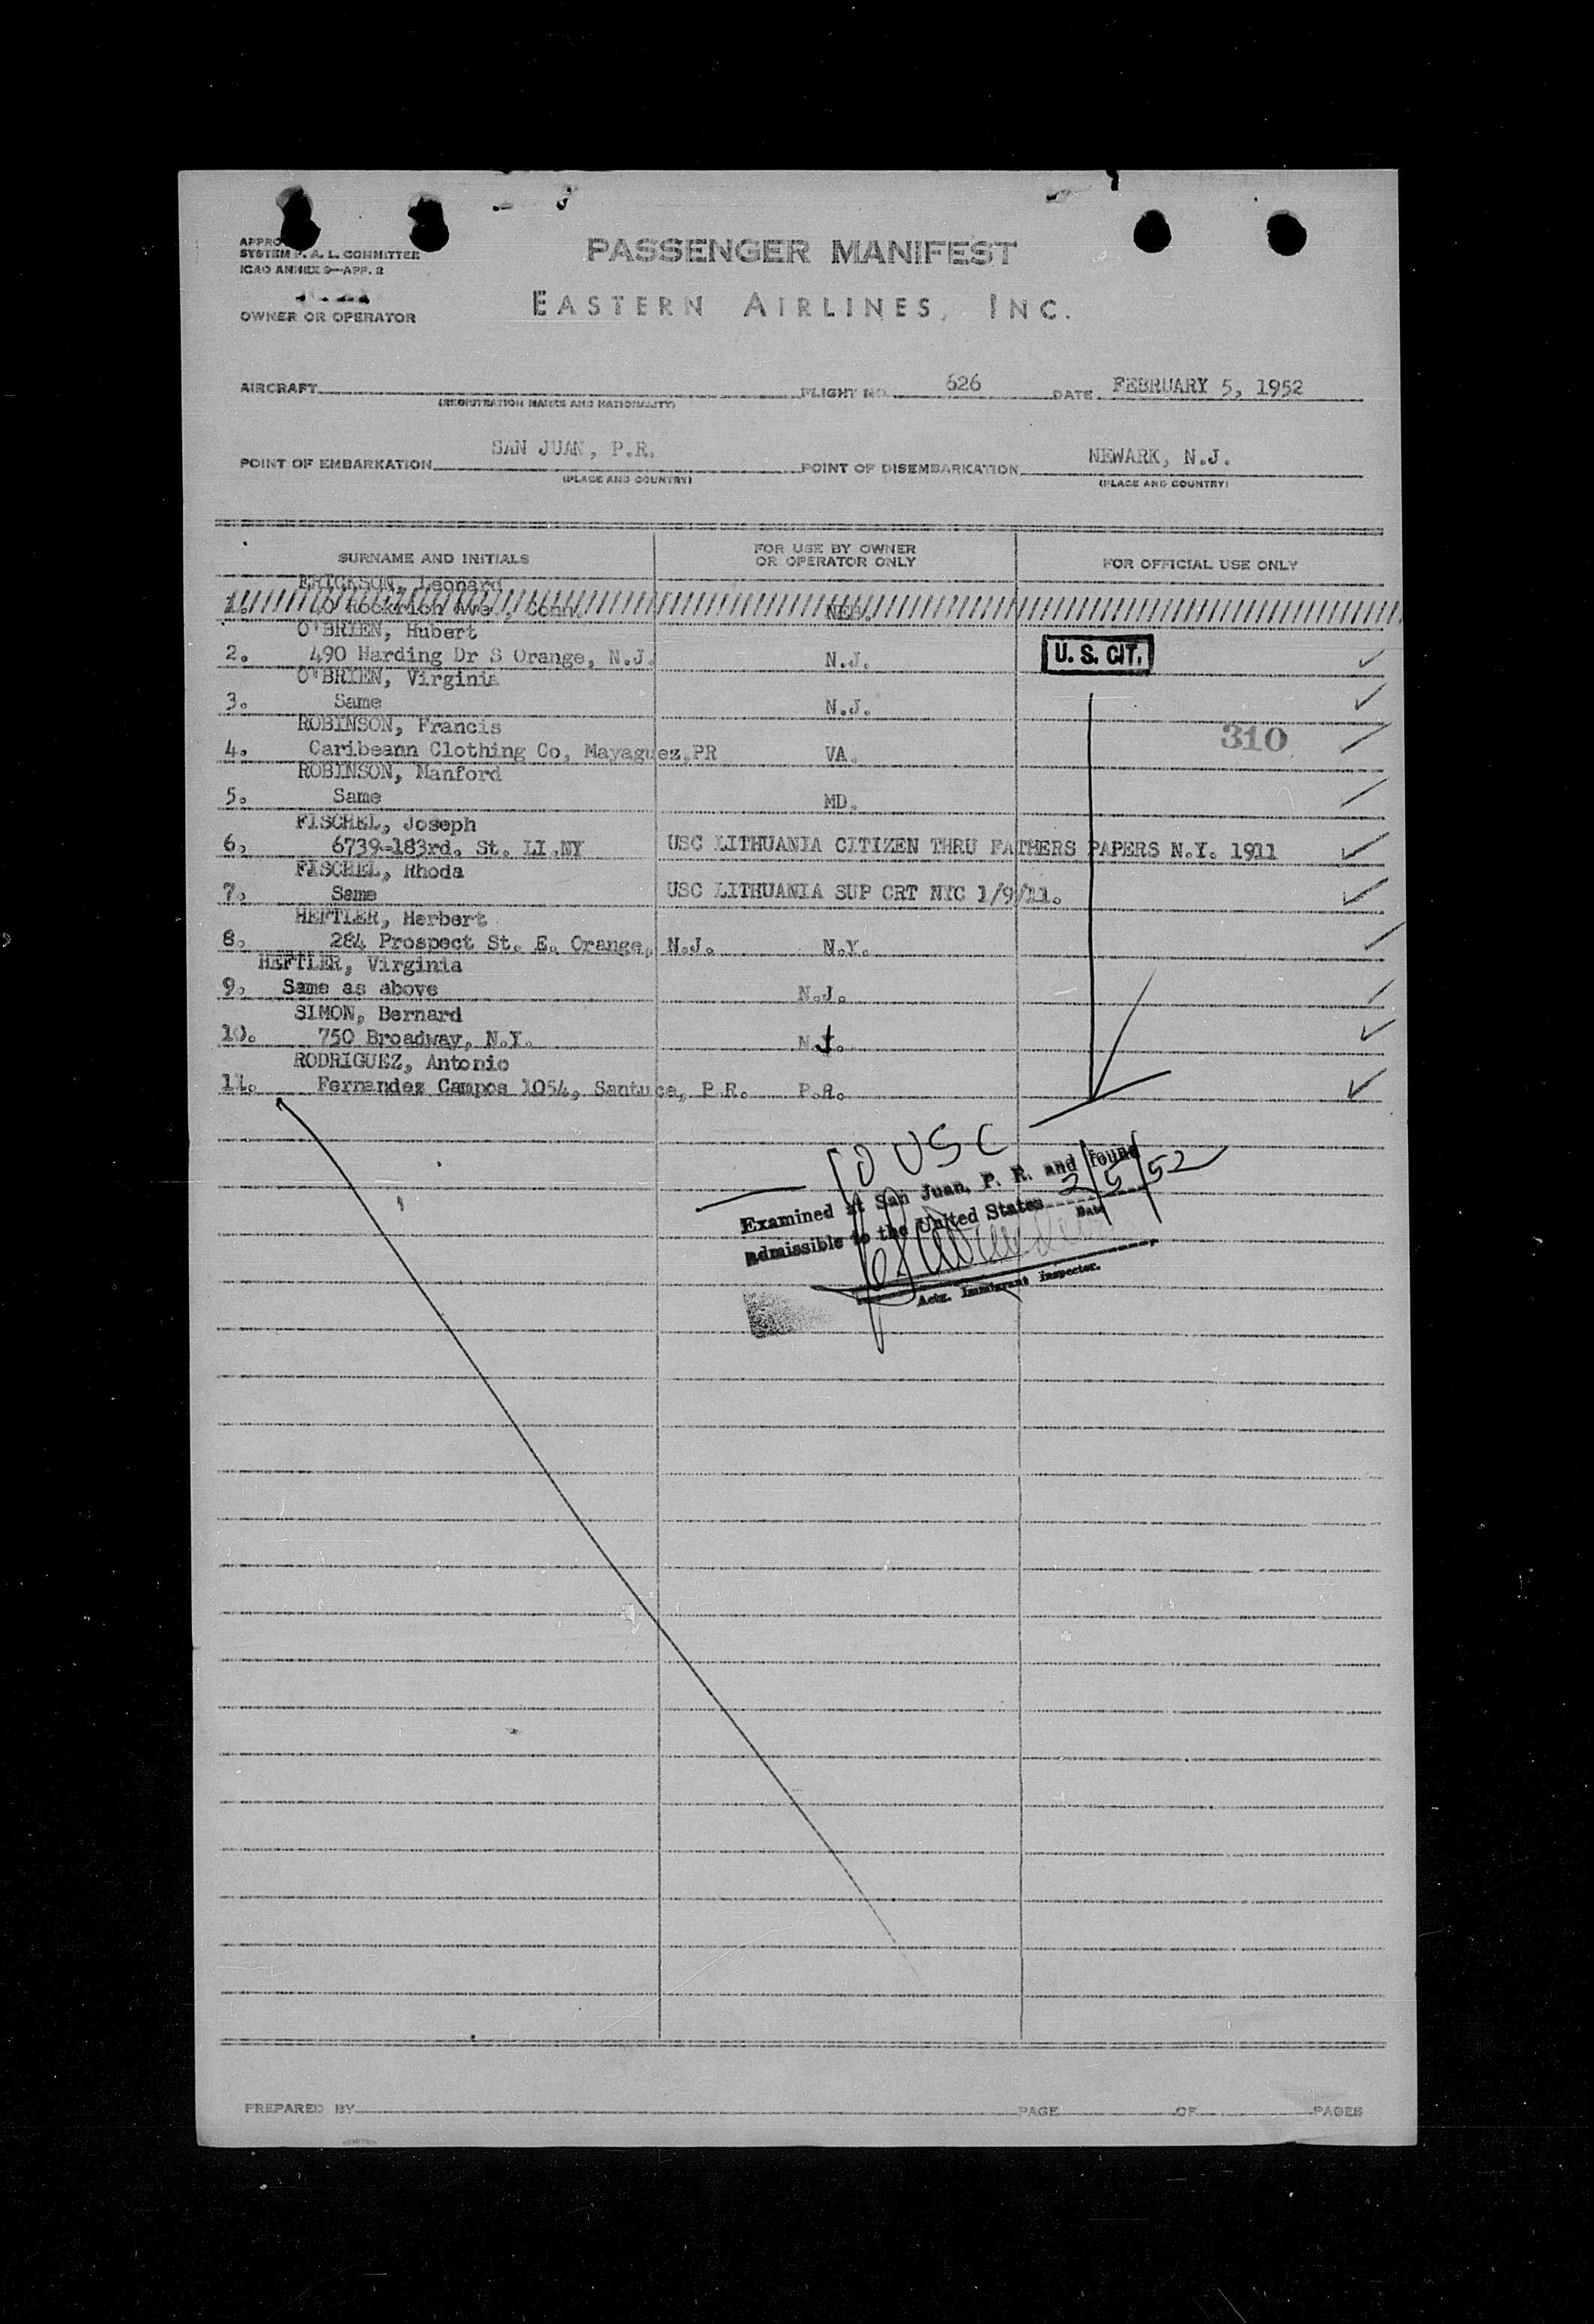 APPRO
SYSTEM F. A. L. COMMITTEE
ICAO ANNEX 9—APP. 2
PASSENGER MANIFEST
EASTERN AIRLINES, INC.
OWNER OR OPERATOR
AIRCRAFT
(REGISTRATION MARKS AND NATIONALITY)
FLIGHT NO. 626
DATE FEBRUARY 5, 1952
POINT OF EMBARKATION SAN JUAN, P.R.
(PLACE AND COUNTRY)
POINT OF DISEMBARKATION NEWARK, N.J.
(PLACE AND COUNTRY)
SURNAME AND INITIALS
FOR USE BY OWNER
OR OPERATOR ONLY
FOR OFFICIAL USE ONLY
ERICKSON, Leonard
1. Ave., Conn. NEB.
O'BRIEN, Hubert
2. 490 Harding Dr S Orange, N.J. N.J. U. S. CIT.
O'BRIEN, Virginia
3. Same N.J.
ROBINSON, Francis
4. Caribeann Clothing Co, Mayaguez,PR VA. 310
ROBINSON, Manford
5. Same MD.
FISCHEL, Joseph
6. 6739-183rd. St. LI.NY USC LITHUANIA CITIZEN THRU FATHERS PAPERS N.Y. 1911
FISCHEL, Rhoda
7. Same USC LITHUANIA SUP CRT NYC 1/9/11.
HEFTLER, Herbert
8. 284 Prospect St. E. Orange, N.J. N.Y.
HEFTLER, Virginia
9. Same as above N.J.
SIMON, Bernard
10. 750 Broadway, N.Y. N.J.
RODRIGUEZ, Antonio
11. Fernandez Campos 1054, Santuce, P.R. P.R.
10 USC
Examined at San Juan, P. R. and found
admissible to the United States 2/5/52
Date
Actg. Immigrant Inspector.
PREPARED BY
PAGE OF PAGES